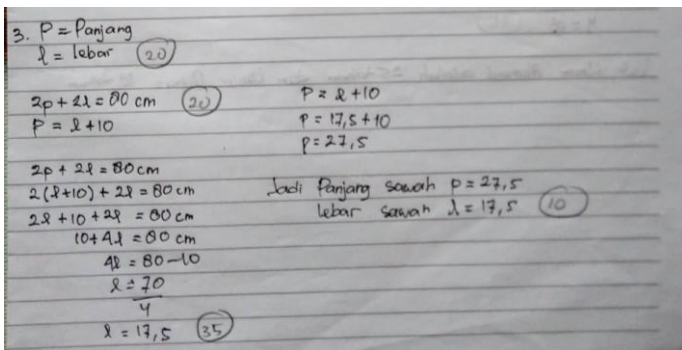 3. P = Panjang
l = lebar (20)
2p + 2l = 80 cm (20)
P = l + 10
2p + 2l = 80 cm
2(l+10) + 2l = 80 cm
2l + 10 + 2l = 80 cm
10 + 4l = 80 cm
4l = 80 - 10
l = 70
4
l = 17,5 (35)
P = l + 10
P = 17,5 + 10
P = 27,5
Jadi Panjang sawah p = 27,5
lebar sawah l = 17,5 (10)